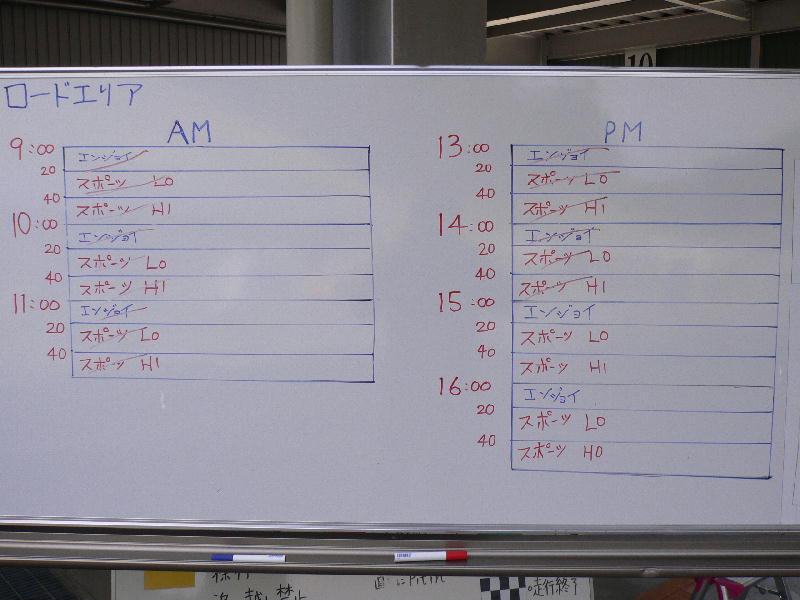 10
ロードエリア
AM
9:00 エンジョイ
20 スポーツ LO
40 スポーツ HI
10:00 エンジョイ
20 スポーツ LO
40 スポーツ HI
11:00 エンジョイ
20 スポーツ LO
40 スポーツ HI
PM
13:00 エンジョイ
20 スポーツ LO
40 スポーツ HI
14:00 エンジョイ
20 スポーツ LO
40 スポーツ HI
15:00 エンジョイ
20 スポーツ LO
40 スポーツ HI
16:00 エンジョイ
20 スポーツ LO
40 スポーツ HO
走行終了